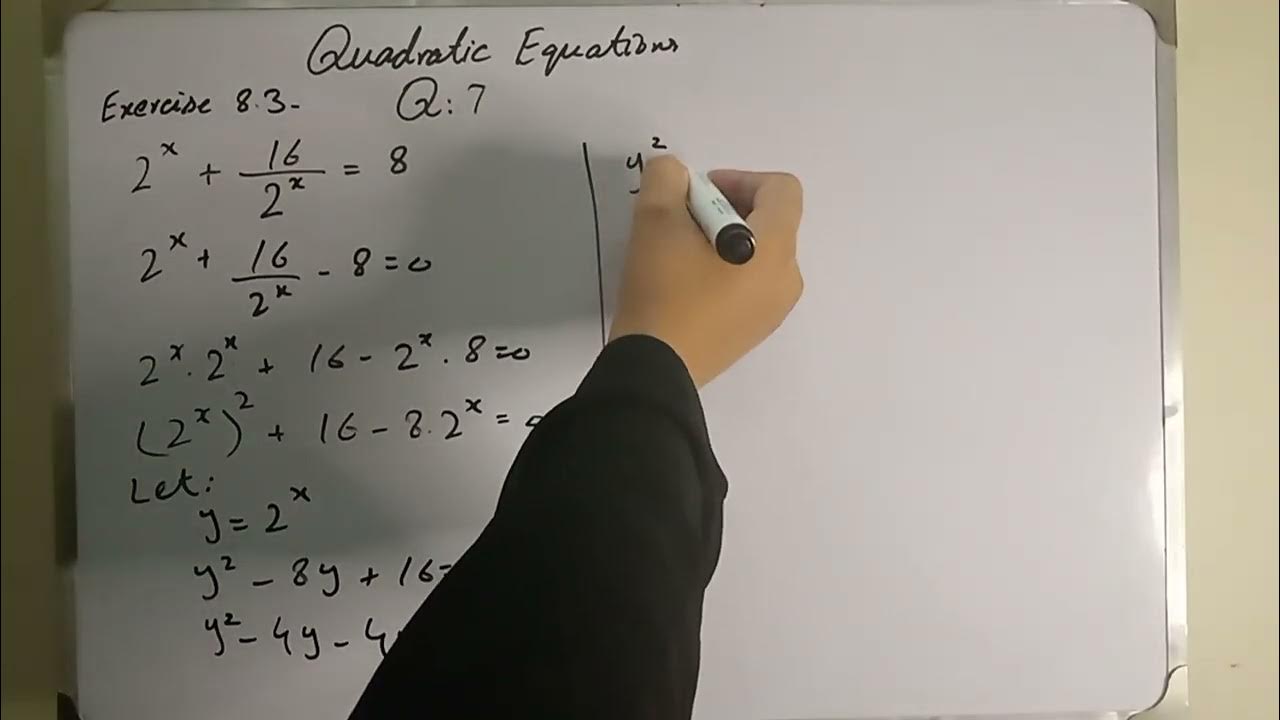 Quadratic Equations
Exercise 8.3- Q: 7
2^x + 16/2^x = 8
2^x + 16/2^x - 8 = 0
2^x . 2^x + 16 - 2^x . 8 = 0
(2^x)^2 + 16 - 8.2^x = 0
Let:
y = 2^x
y^2 - 8y + 16 =
y^2 - 4y - 4
y^2